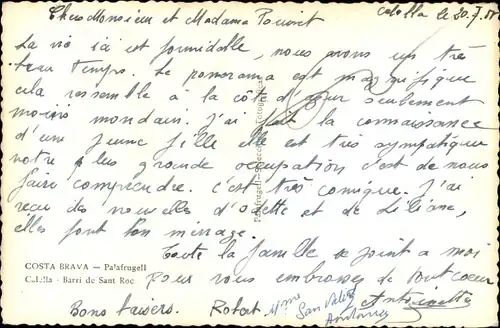 Cher Monsieur et Madame
Calella le 20.7.
La vie ici est formidable, nous avons un très
beau temps. Le panorama est magnifique
cela ressemble à la côte d'azur seulement
moins mondain. J'ai fait la connaissance
d'une jeune fille elle est très sympatique
notre plus grande occupation c'est de nous
faire comprendre. c'est très comique. J'ai
recu des nouvelles d'Odette et de Liliane,
elles font bon ménage.
Toute la famille se joint a moi
COSTA BRAVA — Palafrugell
Pour vous embrasser de tout coeur
Calella - Barri de Sant Roc
Antoinette
Bons baisers. Robert Mme